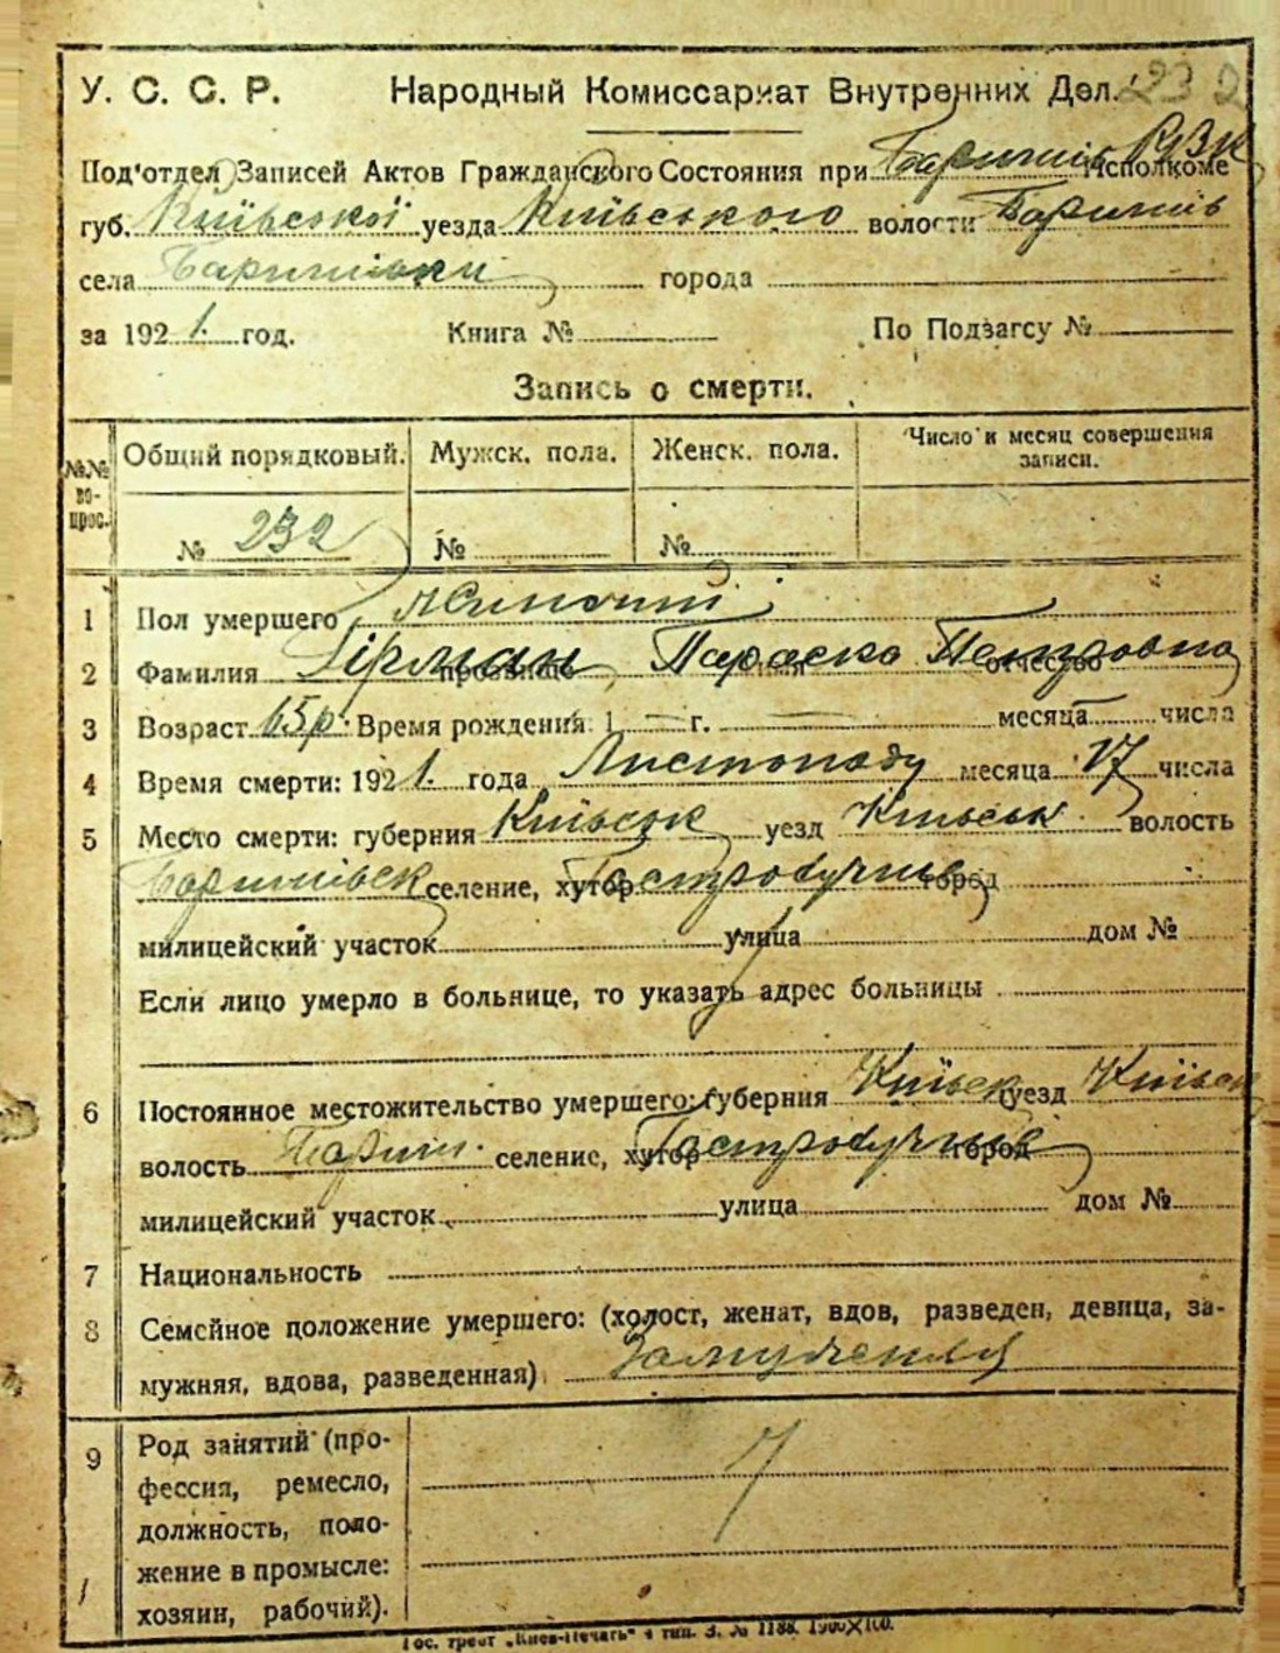 У. С. С. Р. Народный Комиссариат Внутренних Дел. 232
Под'отдел Записей Актов Гражданского Состояния при Исполкоме
губ. Київської уезда Київського волости Баришів
села Баришівки города
за 1921. год. Книга № По Подзагсу №
Запись о смерти.
№№ во-прос. Общий порядковый. Мужск. пола. Женск. пола. Число и месяц совершения
записи.
№ 232 № №
1 Пол умершего жіночий
2 Фамилия прозвище Параска Петровна отчество
3 Возраст 65р. Время рождения 1 г. месяца числа
4 Время смерти: 1921. года Листопаду месяца 17 числа
5 Место смерти: губерния Київськ уезд Київськ. волость
Баришівськ селение, хутор город
милицейский участок улица дом №
Если лицо умерло в больнице, то указать адрес больницы
6 Постоянное местожительство умершего: губерния Київськ уезд Київськ
волость Бариш. селение, хутор город
милицейский участок улица дом №
7 Национальность
8 Семейное положение умершего: (холост, женат, вдов, разведен, девица, за-
мужняя, вдова, разведенная) Замужняя
9 Род занятий (про-
фессия, ремесло,
должность, поло-
жение в промысле:
хозяин, рабочий).
Гос. трест „Киев-Печать" 4 тип. З. № 1188. 1900×100.